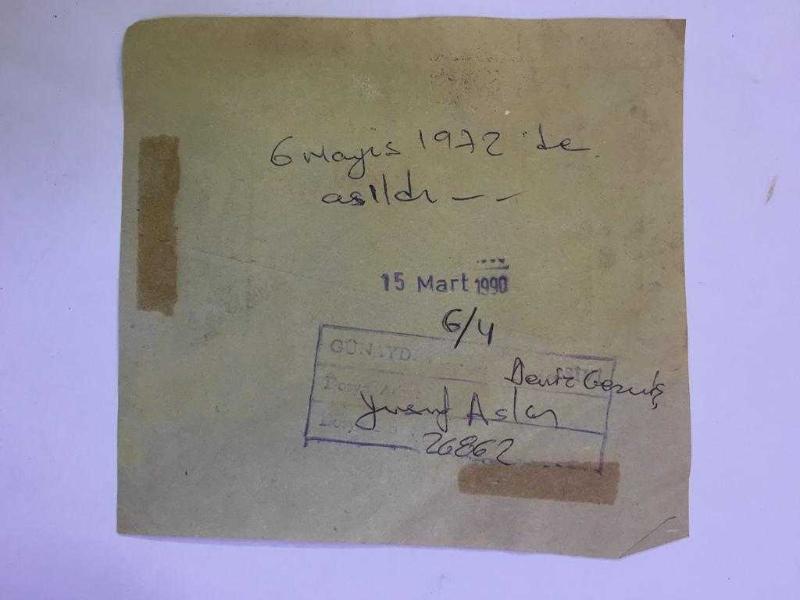 6 Mayıs 1972 de
asıldı - -
15 Mart 1990
6/4
GÜNAYD
Deniz Gezmiş
Yusuf Aslan
26862